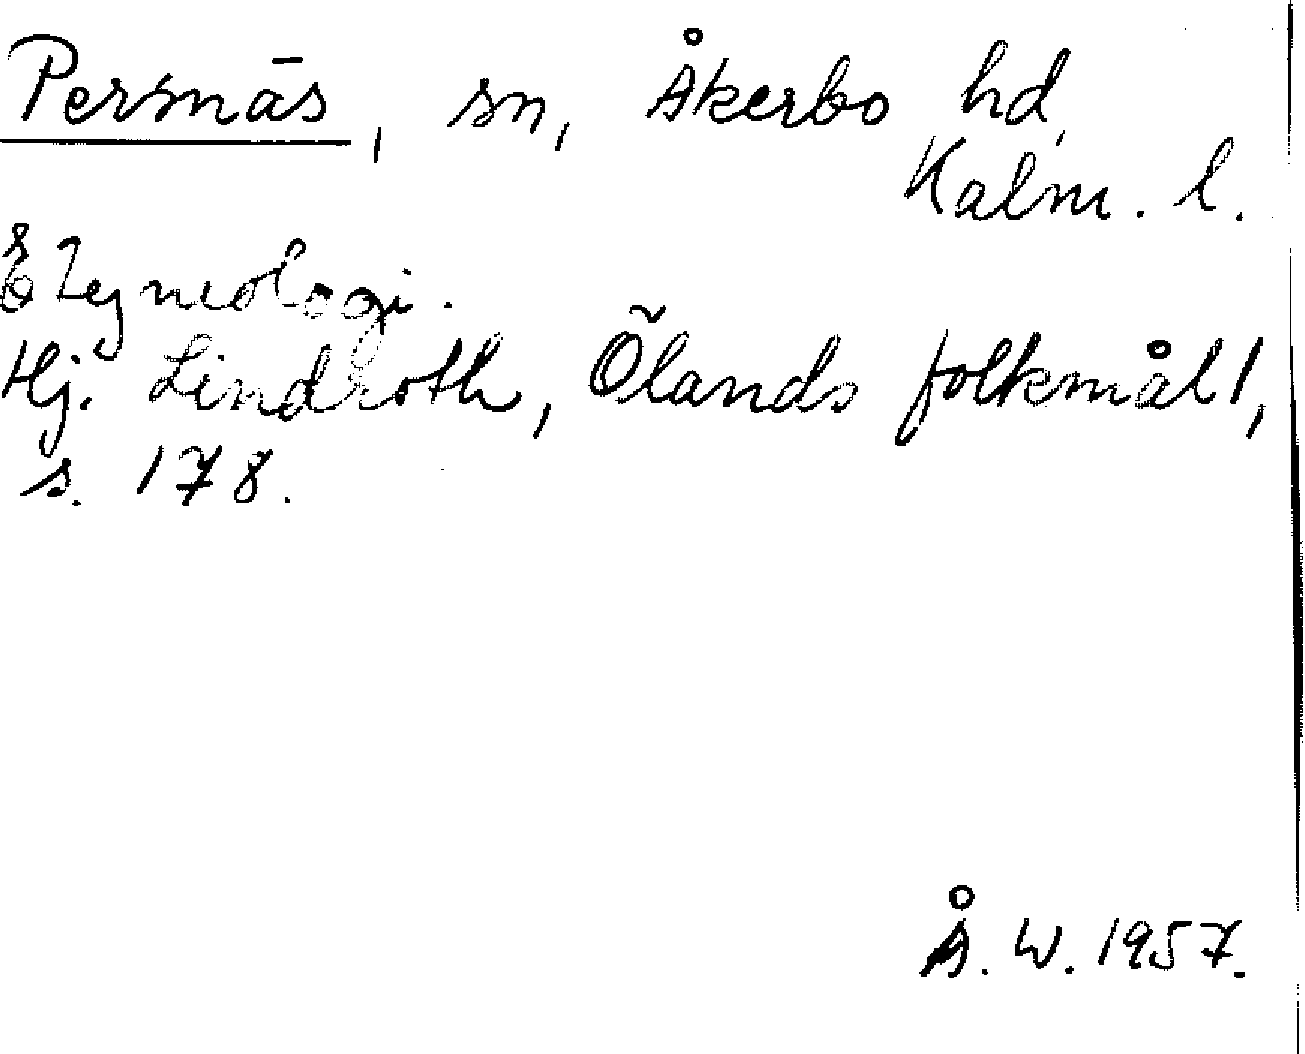 Persnäs, sn, Åkerbo hd,
Kalm. l.
Etymologi.
Hj. Lindroth, Ölands folkmål 1,
s. 178.
Å. W. 1957.